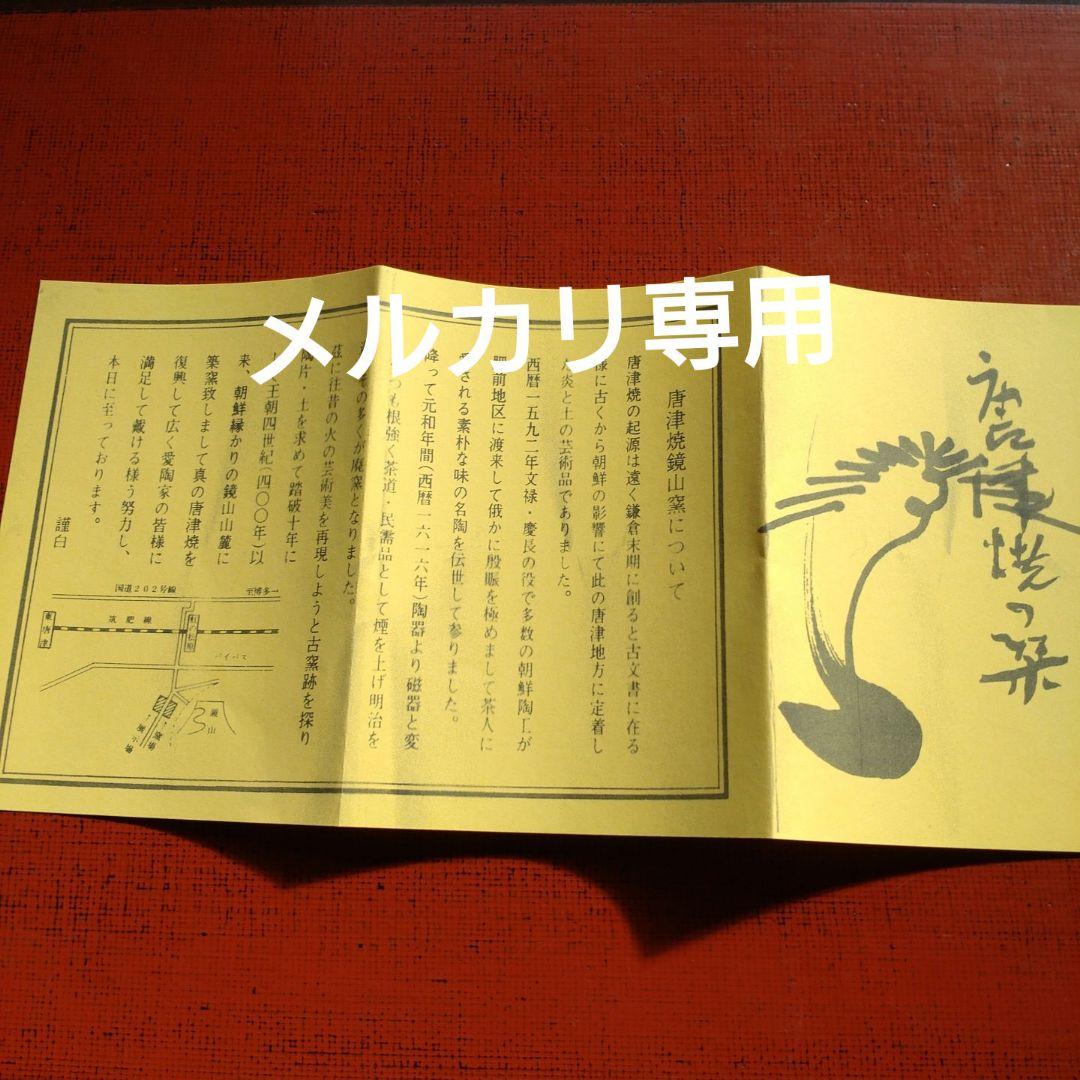 メルカリ専用
唐津焼の栞
唐津焼鏡山窯について
唐津焼の起源は遠く鎌倉末期に創ると古文書に在る
様に古くから朝鮮の影響にて此の唐津地方に定着し
た炎と土の芸術品でありました。
西暦一五九二年文禄・慶長の役で多数の朝鮮陶工が
肥前地区に渡来して俄かに殷賑を極めまして茶人に
される素朴な味の名陶を伝世して参りました。
降って元和年間(西暦一六一六年)陶器より磁器と変
つも根強く茶道・民需品として煙を上げ明治を
の多くが廃窯となりました。
茲に往昔の火の芸術美を再現しようと古窯跡を探り
陶片・土を求めて踏破十年に
王朝四世紀(四〇〇年)以
来、朝鮮縁かりの鏡山山麓に
築窯致しまして真の唐津焼を
復興して広く愛陶家の皆様に
満足して戴ける様う努力し、
本日に至っております。
謹白
国道202号線
至博多→
筑肥線
東唐津
虹ノ松原
バイパス
鏡山
窯場
展示場